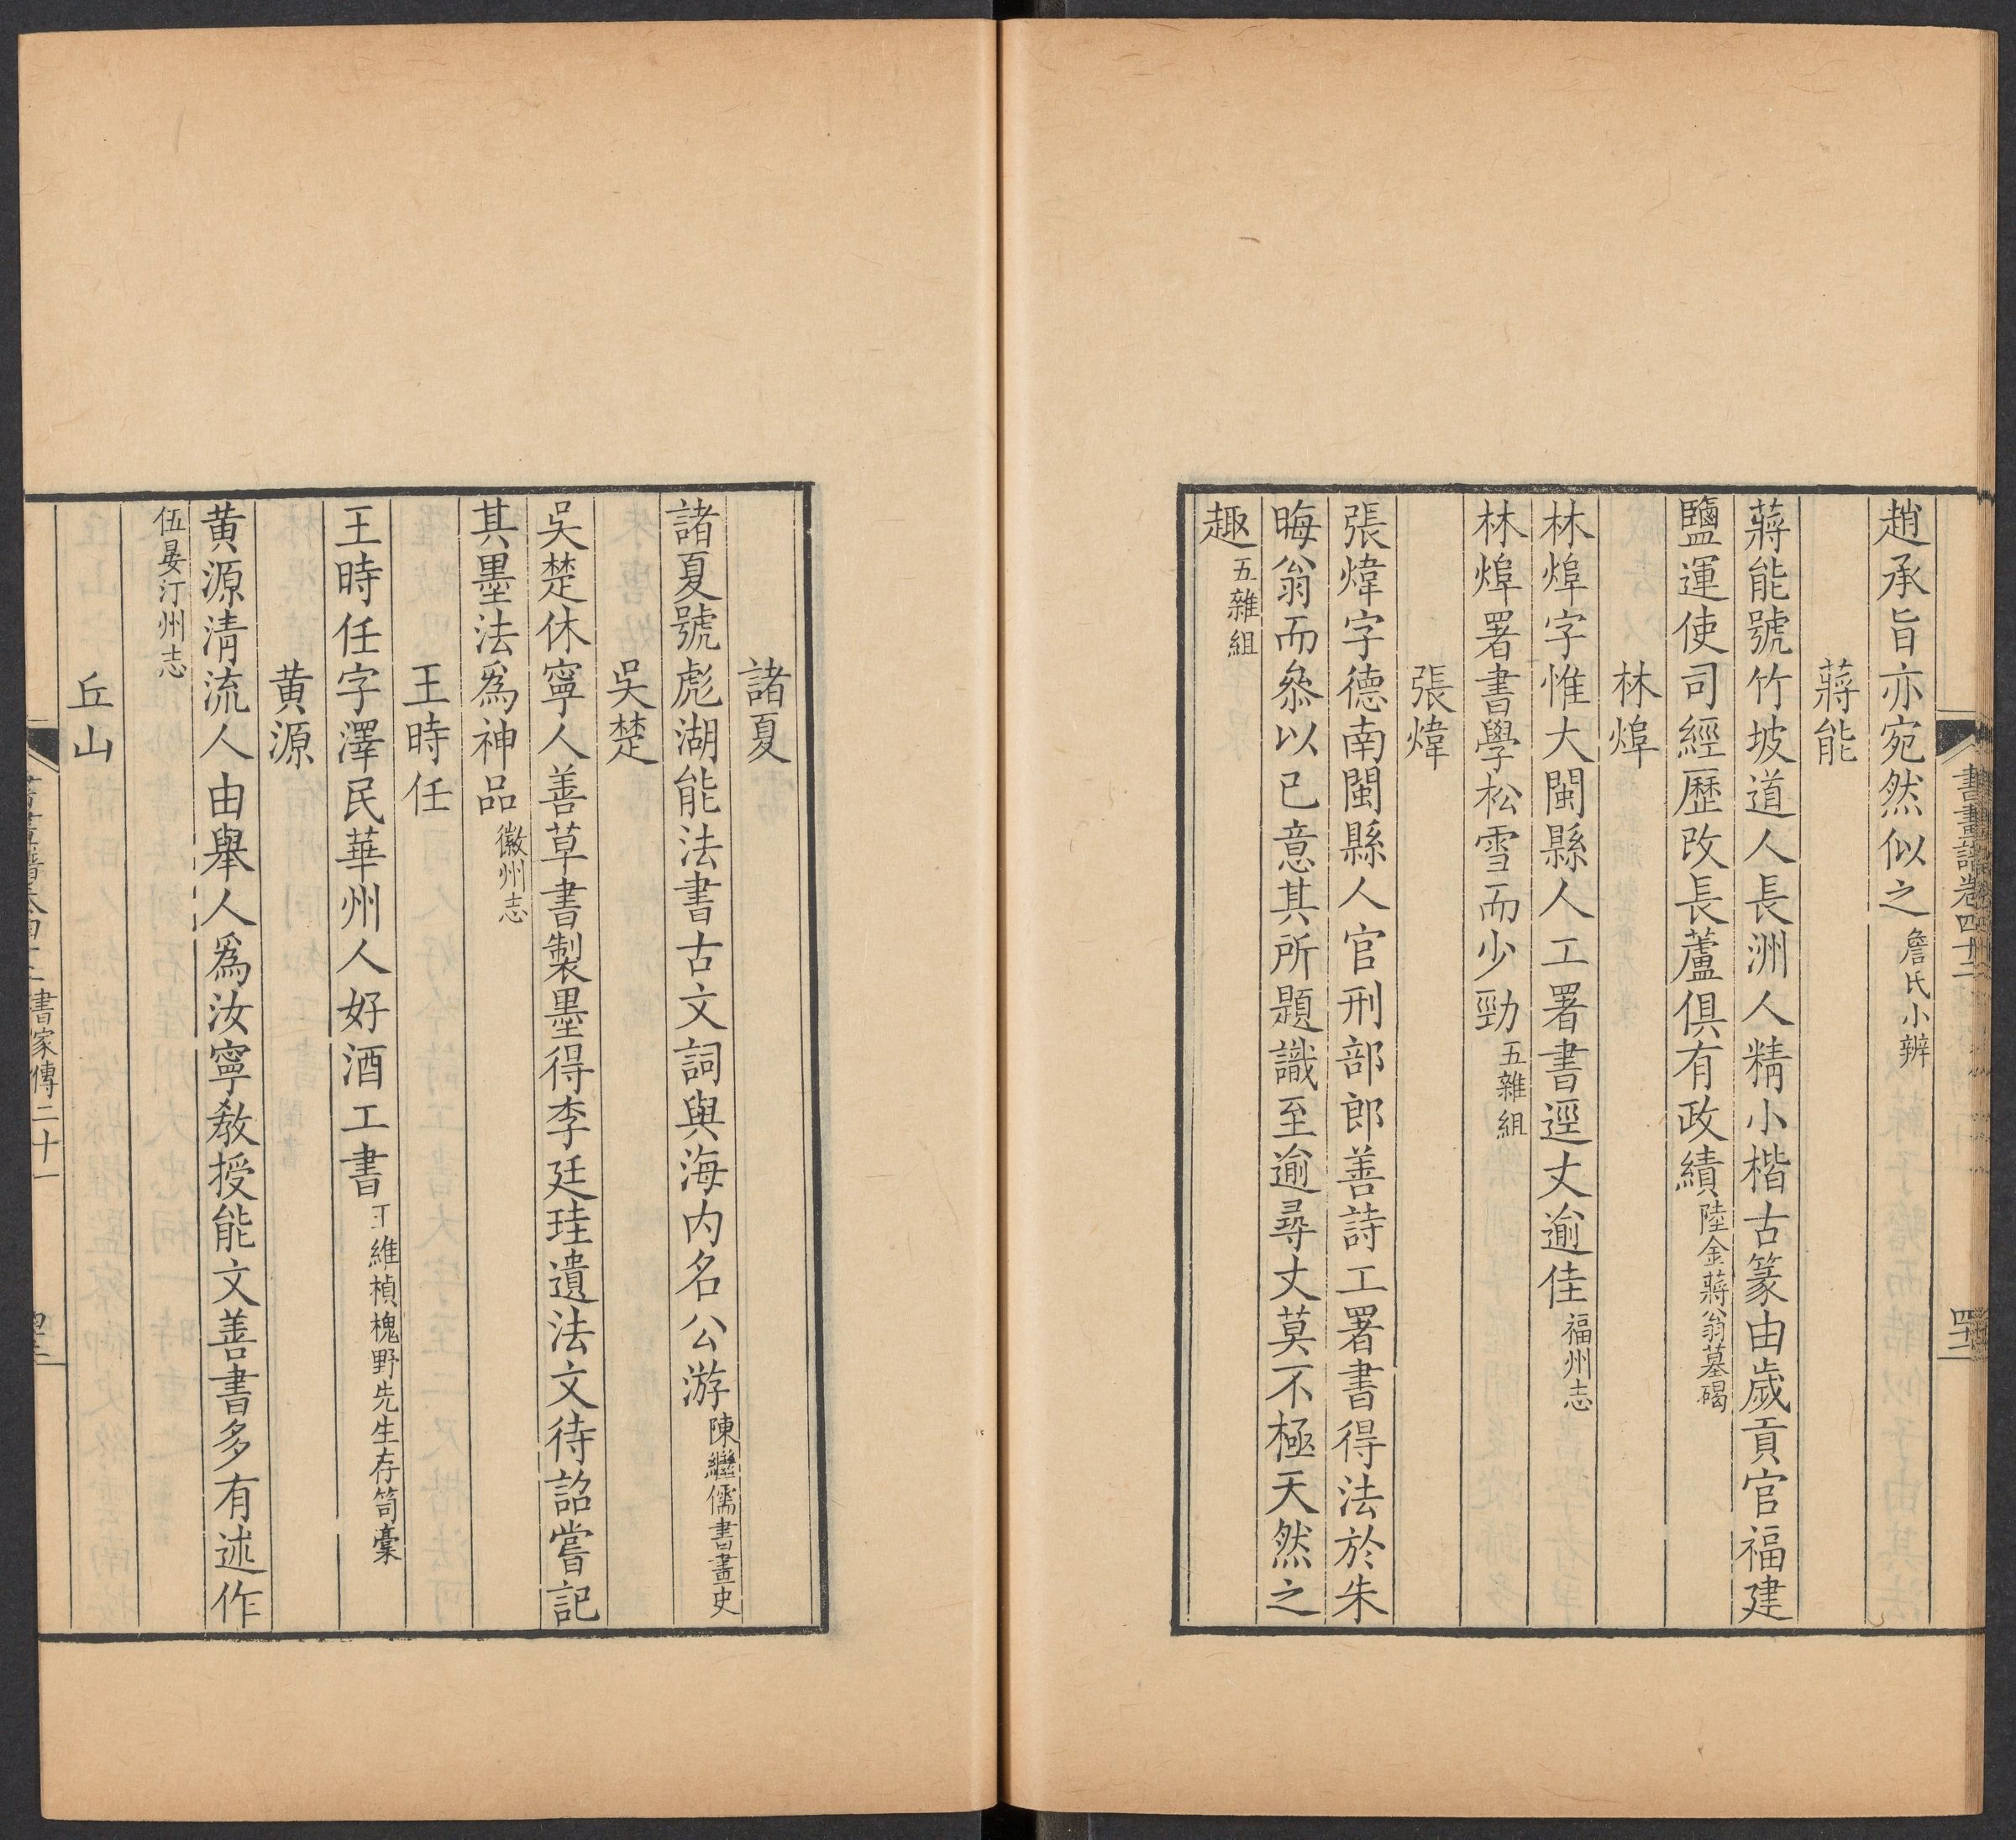 書畫譜卷四十二
趙承旨亦宛然似之詹氏小辨
蔣能
蔣能號竹坡道人長洲人精小楷古篆由歲貢官福建
鹽運使司經歷改長蘆俱有政績陸金蔣翁墓碣
林㷆
林㷆字惟大閩縣人工署書逕丈逾佳福州志
林㷆署書學松雪而少勁五雜組
張煒
張煒字德南閩縣人官刑部郎善詩工署書得法於朱
晦翁而叅以已意其所題識至逾尋丈莫不極天然之
趣五雜組
諸夏
諸夏號彪湖能法書古文詞與海内名公游陳繼儒書畫史
吳楚
吳楚休寧人善草書製墨得李廷珪遺法文待詔嘗記
其墨法爲神品徽州志
王時任
王時任字澤民華州人好酒工書王維楨槐野先生存笥稾
黄源
黄源清流人由舉人爲汝寧敎授能文善書多有述作
伍晏汀州志
丘山
書家傳二十一